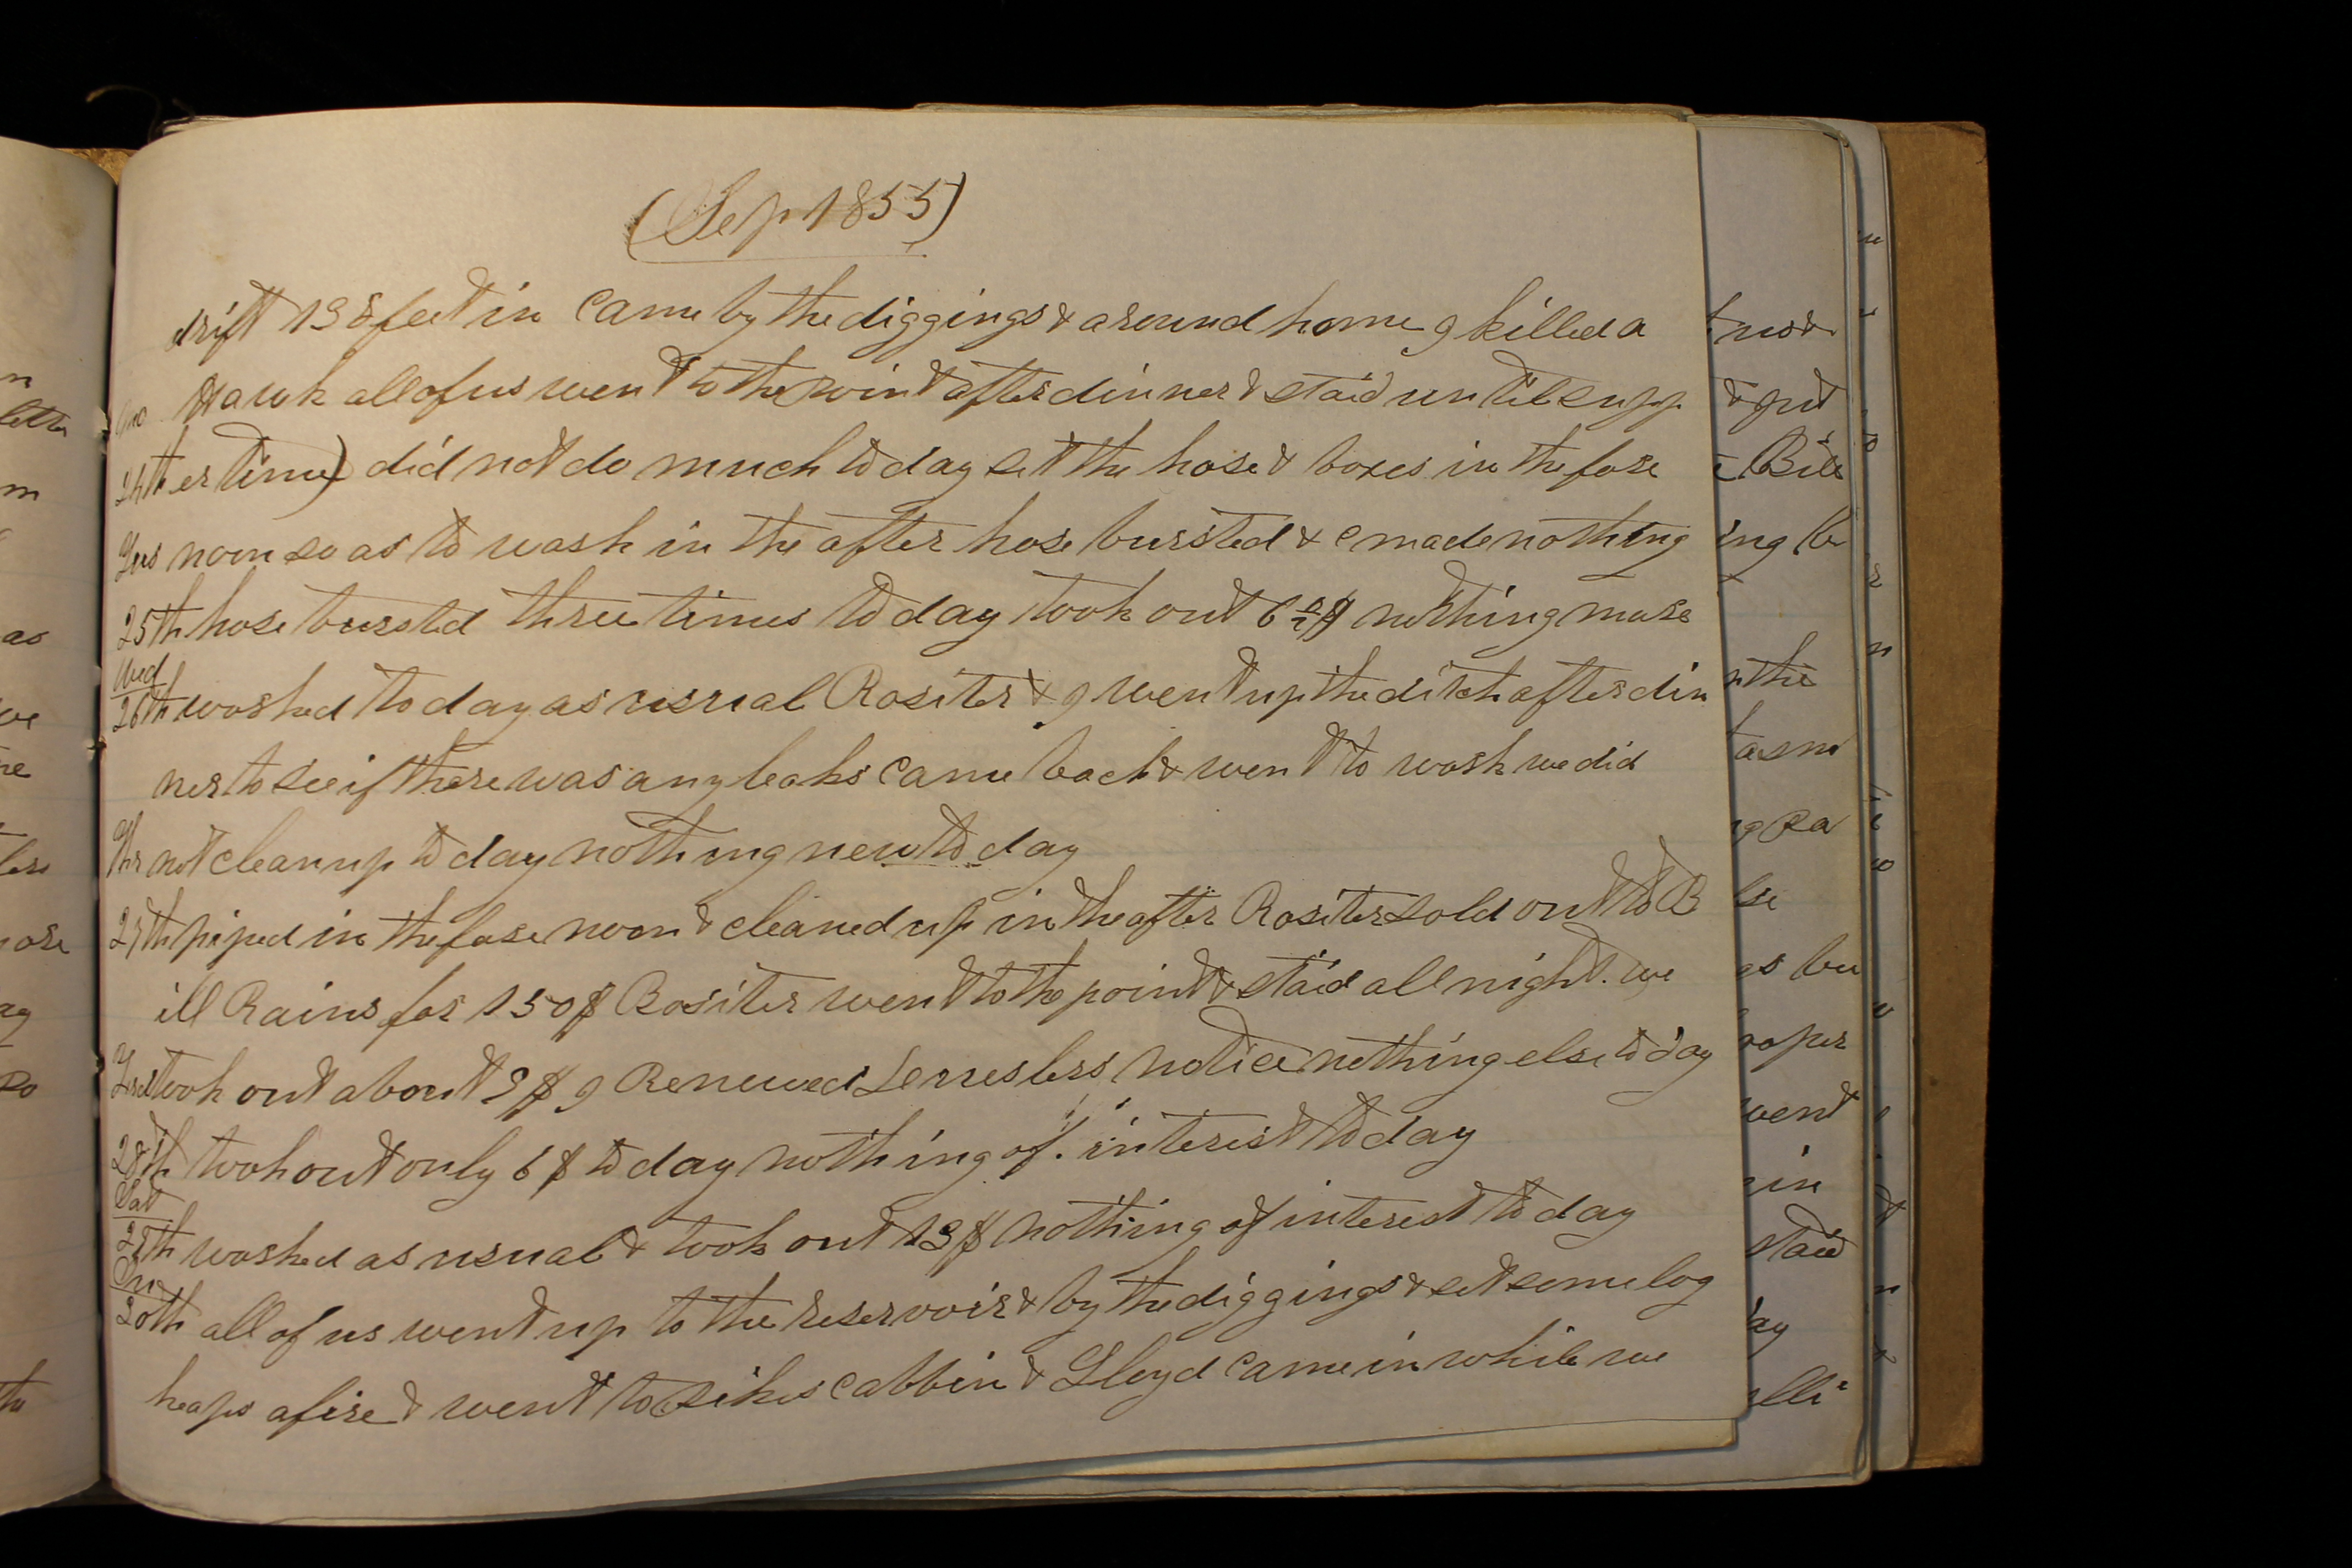 (Sep 1855)
drift 138 feet in Came by the diggings & around home I killed a
Hawk all of us went to the point after dinner & staid until supp
24th er time) did not do much to day set the hose & boxes in the fore
Tus noon so as to wash in the after hose bursted & made nothing
25th hose bursted three times to day took out 6 $ nothing more
Wed
26th washed to day as usual Rositer & I went up the ditch after din
ner to see if there was any leaks Came back & went to wash we did
Thr not clean up to day nothing new to day
27th piped in the fore noon & cleaned up in the after Rositer sold out to B
ill Rains for 150$ Rositer went to the point & staid all night. we
took out about 9$ I Renewed notice nothing else to day
28th took out only 6$ to day nothing of interest to day
Sat
29th washed as usual & took out 13$ nothing of interest to day
Sun
30th all of us went up to the reservoir & by the diggings & set some log
heaps afire & went to sikes cabbin & Lloyd Came in while we